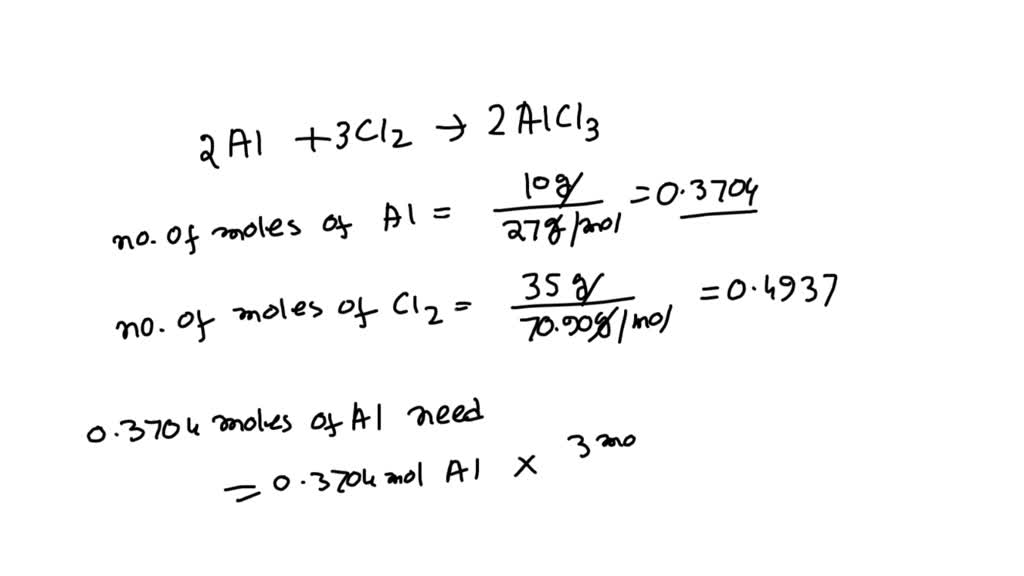 2Al + 3Cl2 → 2AlCl3
no. of moles of Al = 10g / 27g/mol = 0.3704
no. of moles of Cl2 = 35g / 70.90g/mol = 0.4937
0.3704 moles of Al need
= 0.3704 mol Al × 3 mo